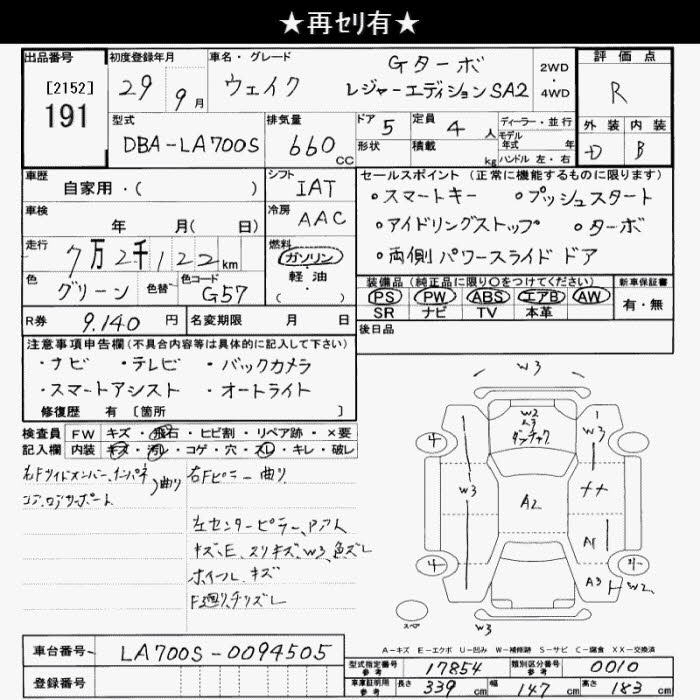 ★再セリ有★
出品番号
[2152]
191
初度登録年月
29年 9月
車名・グレード
ウェイク
Gターボ
レジャーエディションSA2
2WD
・
4WD
評価点
R
外装 内装
D B
型式
DBA-LA700S
排気量
660 cc
ドア 5
形状
定員 4 人
積載 kg
ディーラー・並行
モデル
年式 年
ハンドル 左・右
車歴
自家用・( )
シフト
IAT
車検
年 月( 日)
冷房
AAC
走行
7万2千122km
燃料
ガソリン
軽・油
( )
色
グリーン
色替
色コード
G57
R券 9.140 円
名変期限 月 日
セールスポイント(正常に機能するものに限ります)
・スマートキー ・プッシュスタート
・アイドリングストップ ・ターボ
・両側パワースライドドア
装備品(純正品に限り○をつけてください)
PS PW ABS エアB AW
SR ナビ TV 本革
新車保証書
有・無
後日品
注意事項申告欄(不具合内容等は具体的に記入して下さい)
・ナビ ・テレビ ・バックカメラ
・スマートアシスト ・オートライト
修復歴 有〔箇所 〕
検査員
記入欄
FW キズ・飛石・ヒビ割・リペア跡・×要
内装 キズ・汚レ・コゲ・穴・スレ・キレ・破レ
右Fサイドメンバー、インパネ
コア、ロアサポート
曲り
右Fピラー 曲り
左センターピラー、Pアト
キズ、E、スリキズ、W3、色ズレ
ホイール、キズ
F廻り、チリズレ
W3
W2
W3
4
4
W3
A2
A1
A3
W2
スペア
W3
A-キズ E-エクボ U-凹み W-補修跡 S-サビ C-腐食 XX-交換済
車台番号 LA700S-0094505
登録番号
型式指定番号
参考
17854
類別区分番号
参考
0010
車庫証明用
参考
長さ 339 cm 幅 147 cm 高さ 183 cm